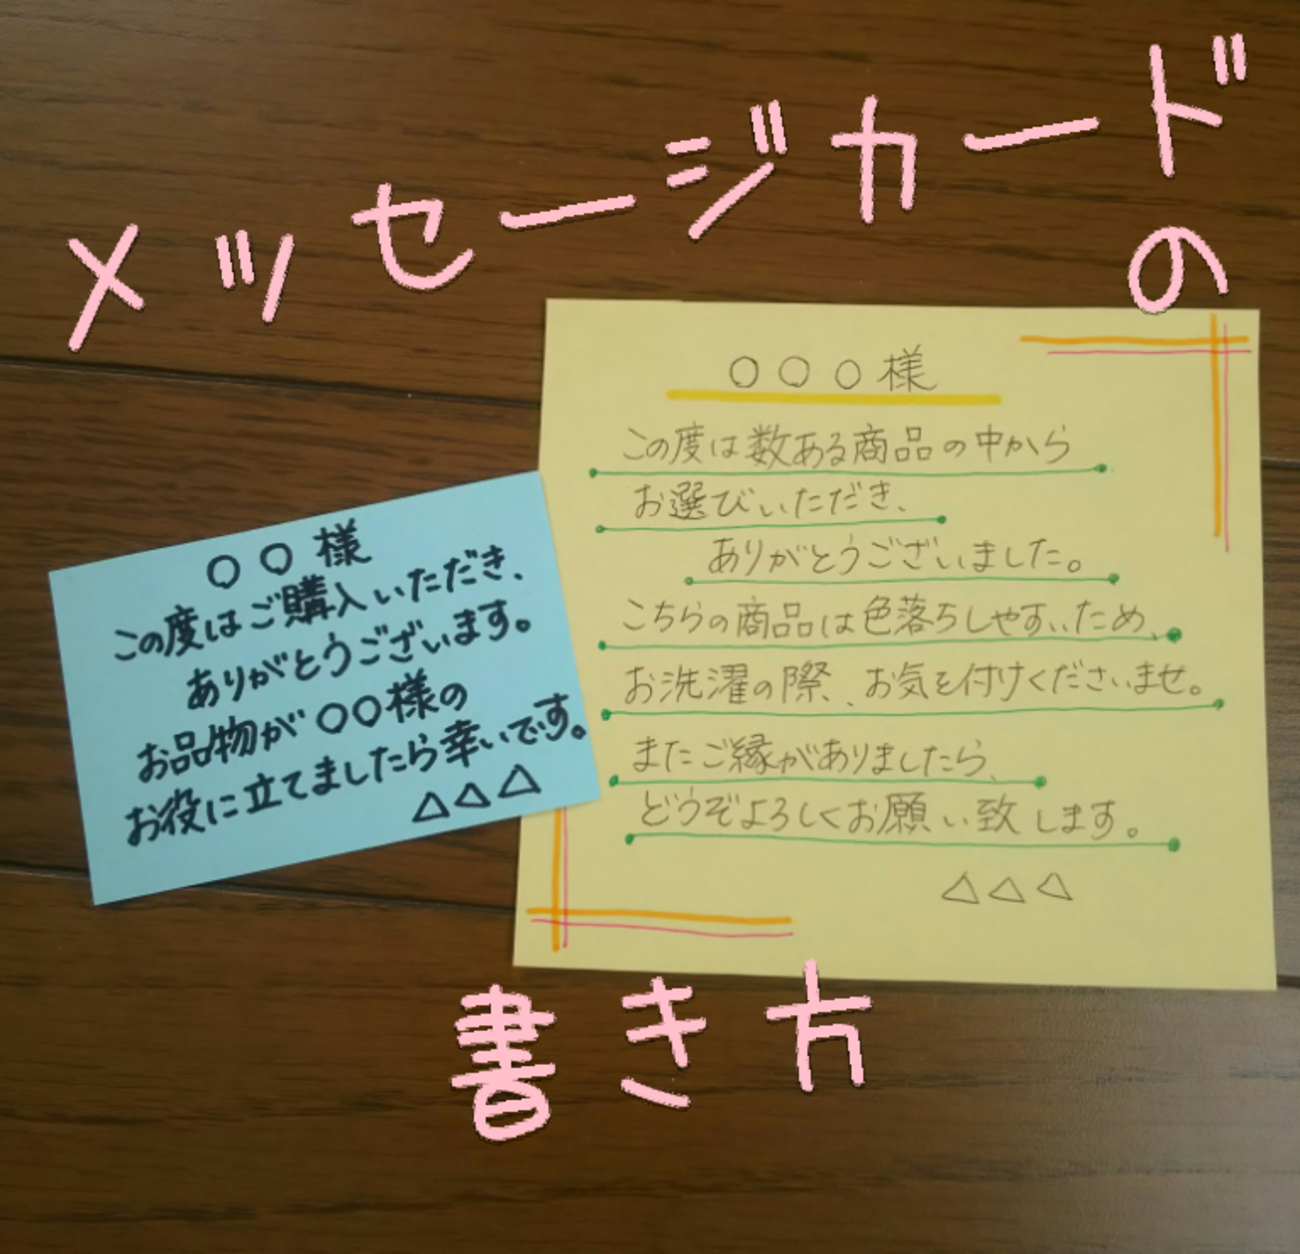 メッセージカードの
〇〇様
この度はご購入いただき、
ありがとうございます。
お品物が〇〇様の
お役に立てましたら幸いです。
△△△
〇〇〇様
この度は数ある商品の中から
お選びいただき、
ありがとうございました。
こちらの商品は色落ちしやすいため、
お洗濯の際、お気を付けくださいませ。
またご縁がありましたら、
どうぞよろしくお願い致します。
△△△
書き方